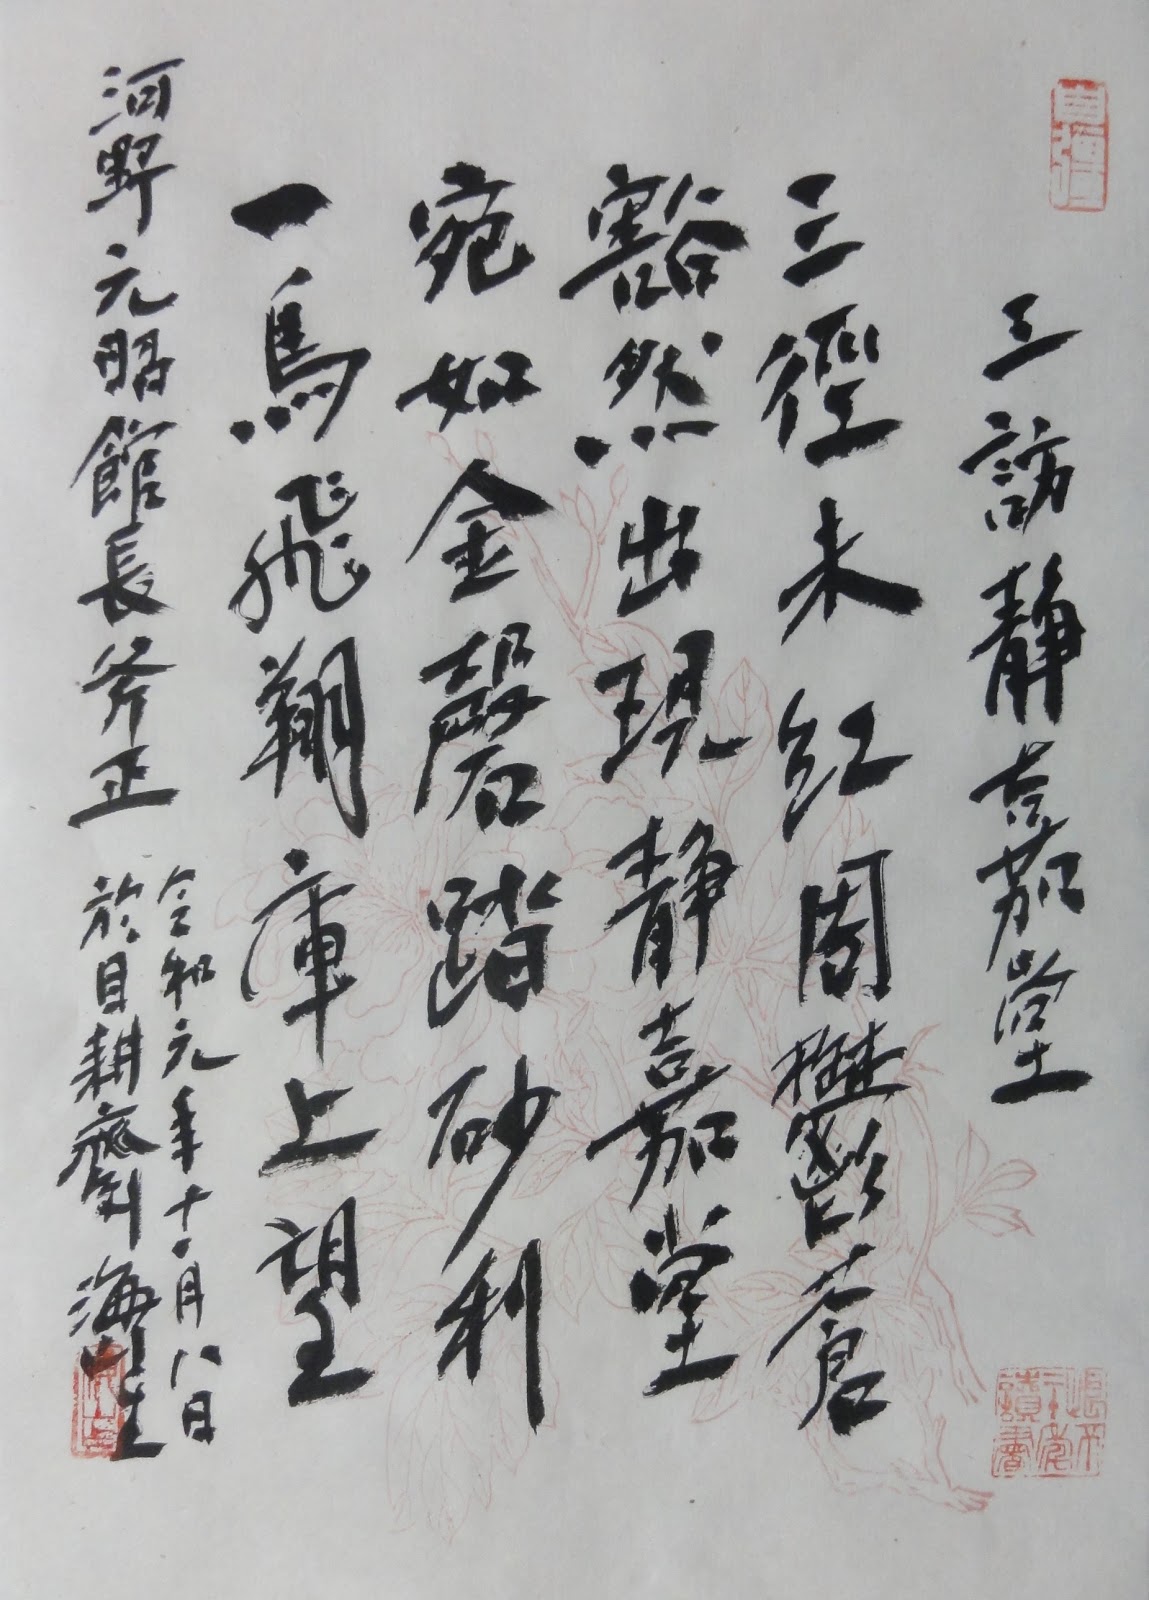 三訪靜嘉堂
三徑未紅周鬱蒼
豁然出現靜嘉堂
宛如金磬踏砂利
一鳥飛翔庫上望
河野元昭館長斧正
令和元年十一月八日
於目耕齋